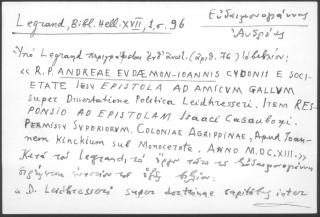 Legrand, Bibl. Hell. XVII, 1, σ. 96
Εὐδαιμονογιάννης
Ἀνδρέας
Ὑπὸ Legrand περιγράφεται (ἀριθ. 76) τὸ βιβλίον:
« R.P. ANDREAE EUDÆMON-IOANNIS CYDONII E SOCI-
ETATE IESU EPISTOLA AD AMICUM GALLUM
super Dissertatione Politica Leidhresseri. ITEM RES-
PONSIO AD EPISTOLAM Isaaci Casauboni.
PERMISSU SUPERIORUM. COLONIAE AGRIPPINAE, Apud Ioan-
nem Kinckium sub Monocerote. ANNO M.DC.XIII.»
Κατὰ τὸν Legrand, τὸ ἔργον τοῦτο τοῦ Εὐδαιμονογιάννη
« D. Leidhresseri super doctrinae capitibus inter